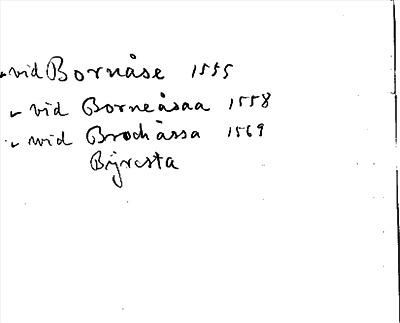 vid Bornåse 1555
vid Borneåsaa 1558
wid Brochåssa 1569
Bÿresta